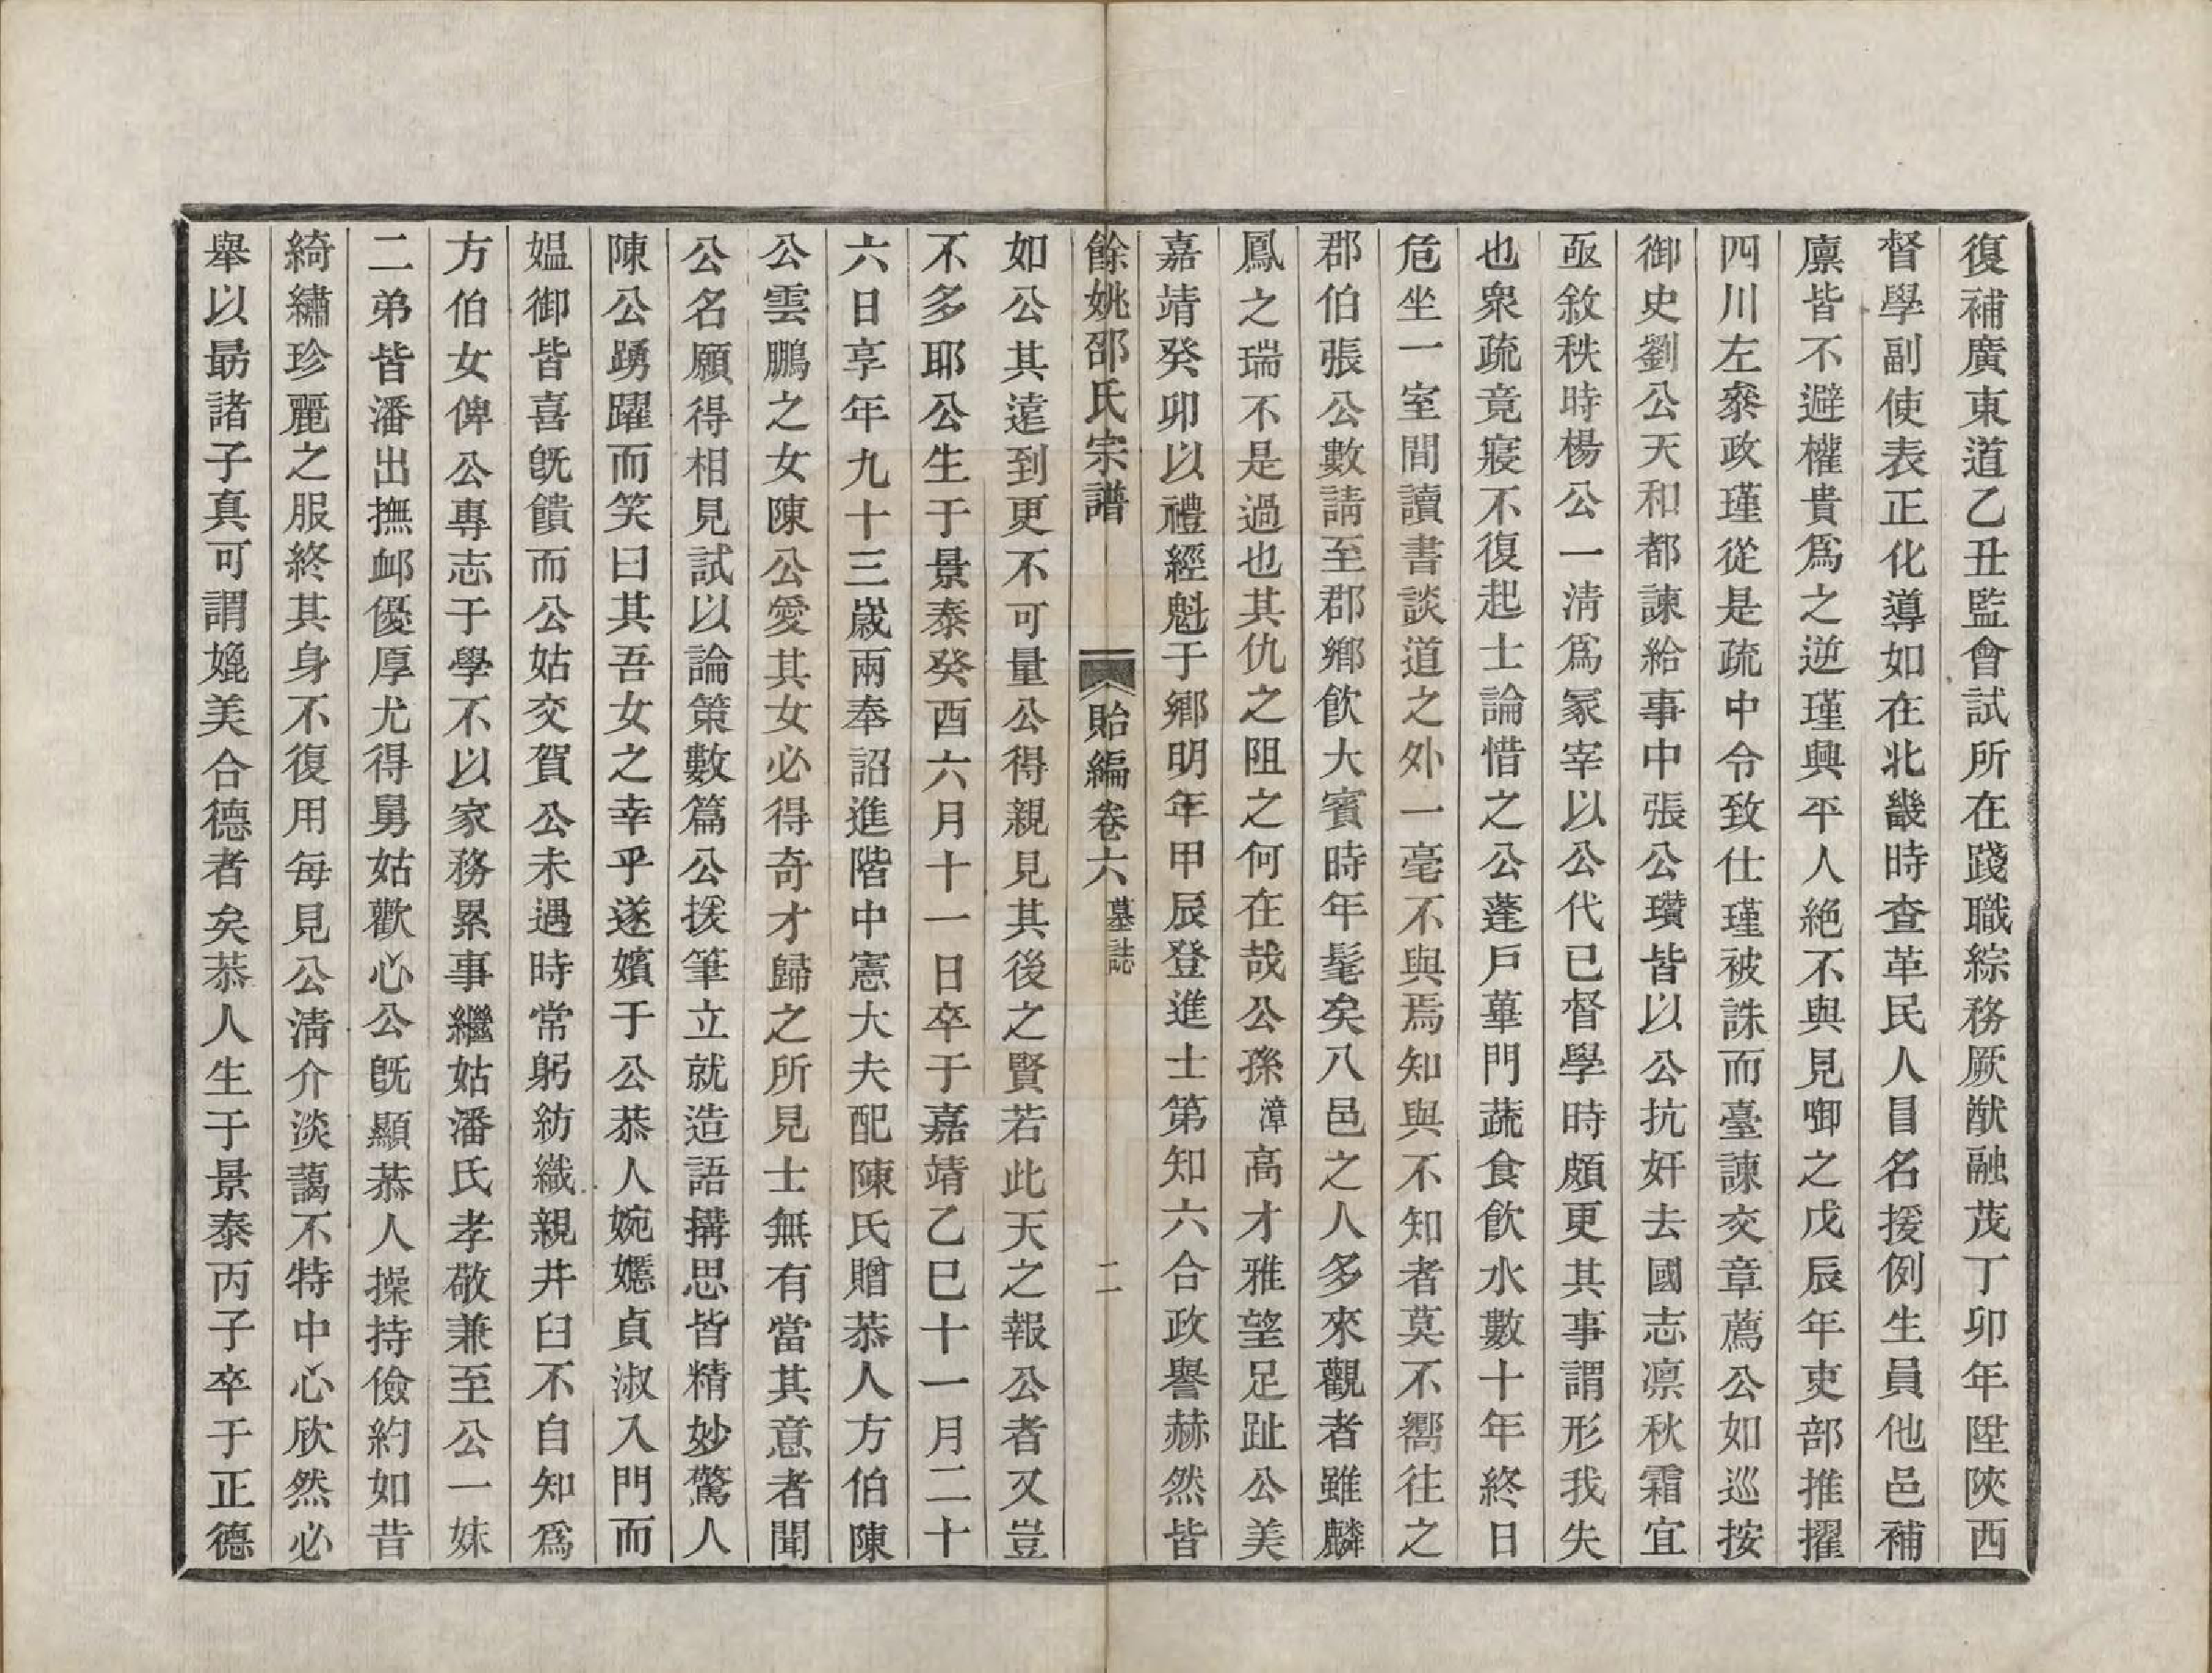 復補廣東道乙丑監會試所在踐職綜務厥猷融茂丁卯年陞陝西
督學副使表正化導如在北畿時查革民人冒名援例生員他邑補
廩皆不避權貴爲之逆瑾興平人絕不與見啣之戊辰年吏部推擢
四川左叅政瑾從是疏中令致仕瑾被誅而臺諫交章薦公如巡按
御史劉公天和都諫給事中張公瓚皆以公抗奸去國志凛秋霜宜
亟敘秩時楊公一清爲冡宰以公代已督學時頗更其事謂形我失
也衆疏竟寢不復起士論惜之公蓬戶蓽門蔬食飮水數十年終日
危坐一室間讀書談道之外一毫不與焉知與不知者莫不嚮往之
郡伯張公數請至郡鄉飮大賓時年髦矣八邑之人多來觀者雖麟
鳳之瑞不是過也其仇之阻之何在哉公孫漳高才雅望足趾公美
嘉靖癸卯以禮經魁于鄉明年甲辰登進士第知六合政譽赫然皆
餘姚邵氏宗譜　貽編卷六　墓誌　二
如公其遠到更不可量公得親見其後之賢若此天之報公者又豈
不多耶公生于景泰癸酉六月十一日卒于嘉靖乙巳十一月二十
六日享年九十三歲兩奉詔進階中憲大夫配陳氏贈恭人方伯陳
公雲鵬之女陳公愛其女必得奇才歸之所見士無有當其意者聞
公名願得相見試以論策數篇公援筆立就造語搆思皆精妙驚人
陳公踴躍而笑曰其吾女之幸乎遂嬪于公恭人婉嬺貞淑入門而
媪御皆喜旣饋而公姑交賀公未遇時常躬紡織親井臼不自知爲
方伯女俾公專志于學不以家務累事繼姑潘氏孝敬兼至公一妹
二弟皆潘出撫卹優厚尤得舅姑歡心公旣顯恭人操持儉約如昔
綺繡珍麗之服終其身不復用每見公清介淡藹不特中心欣然必
舉以勗諸子真可謂媲美合德者矣恭人生于景泰丙子卒于正德